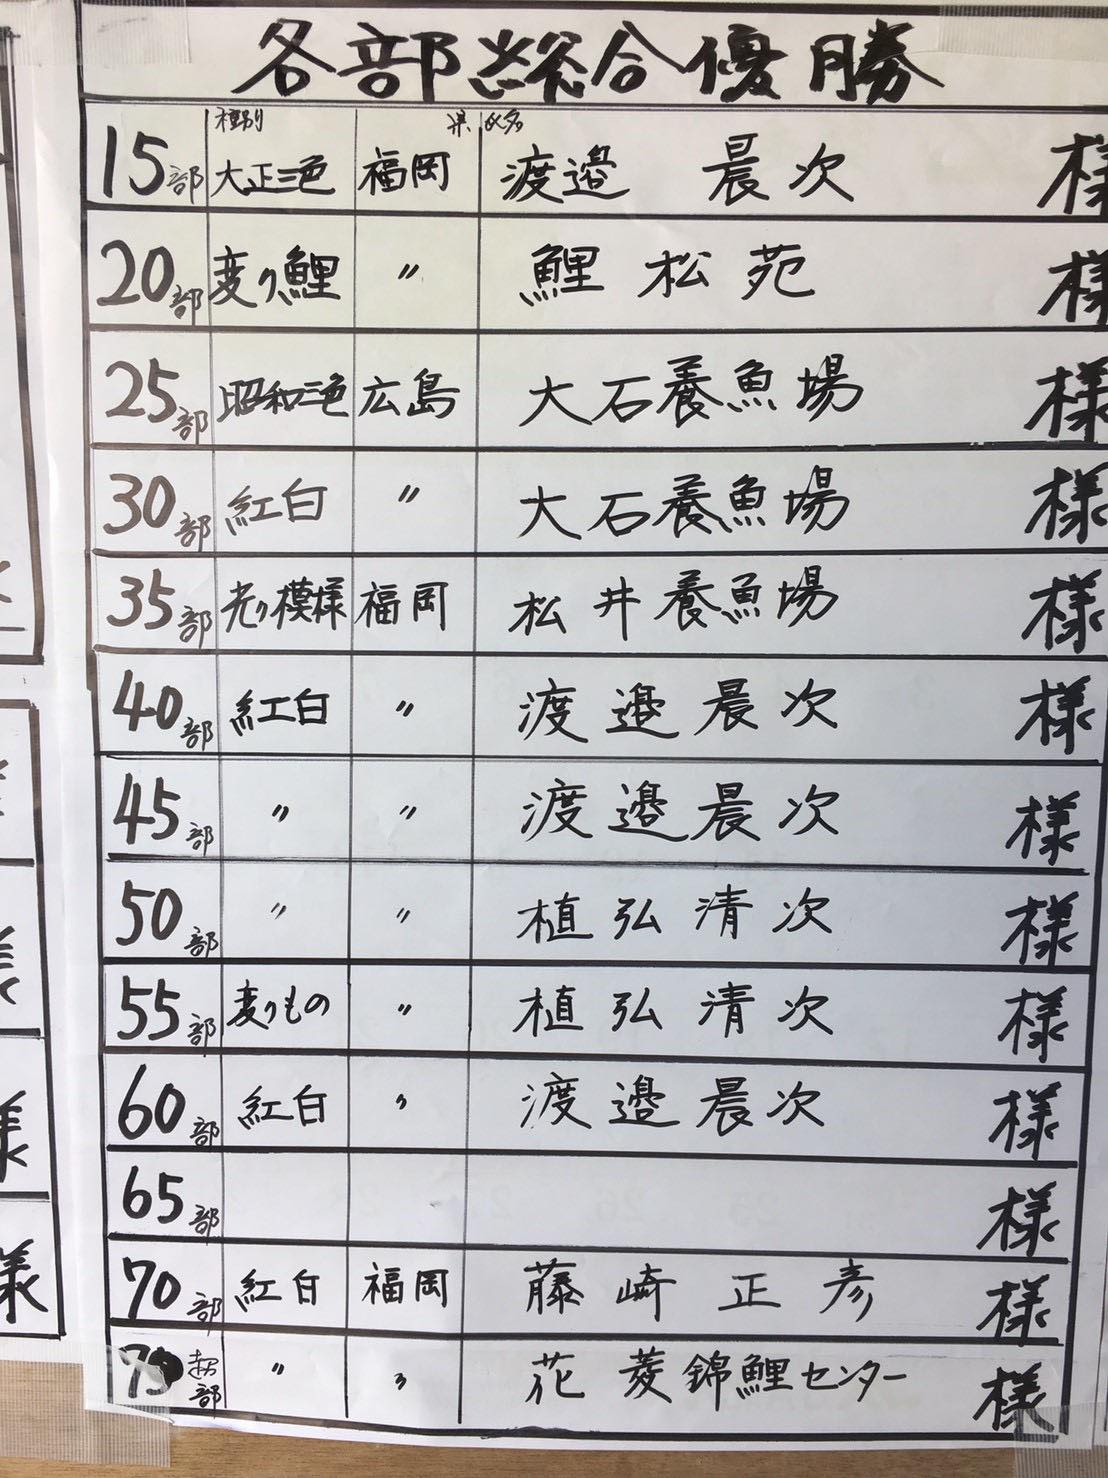 各部総合優勝
種別 県 氏名
15部 大正三色 福岡 渡邉 晨次 様
20部 変り鯉 〃 鯉松苑 様
25部 昭和三色 広島 大石養魚場 様
30部 紅白 〃 大石養魚場 様
35部 光り模様 福岡 松井養魚場 様
40部 紅白 〃 渡邉晨次 様
45部 〃 〃 渡邉晨次 様
50部 〃 〃 植弘清次 様
55部 変りもの 〃 植弘清次 様
60部 紅白 〃 渡邉晨次 様
65部 様
70部 紅白 福岡 藤崎正彦 様
70超部 〃 〃 花菱錦鯉センター 様
様
様
様